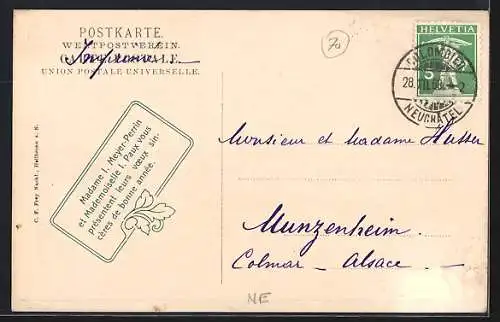 POSTKARTE.
WELTPOSTVEREIN.
CARTE POSTALE.
UNION POSTALE UNIVERSELLE.
70
HELVETIA
5
COLOMBIER
28.XII.08.
NEUCHÂTEL
Madame I. Meyer-Perrin
et Mademoiselle I. Paux vous
présentent leurs vœux sin-
cères de bonne année.
C. F. Frey Nachf., Heilbronn a. N.
Monsieur et madame Hasser
Munzenheim
Colmar – Alsace.
NE